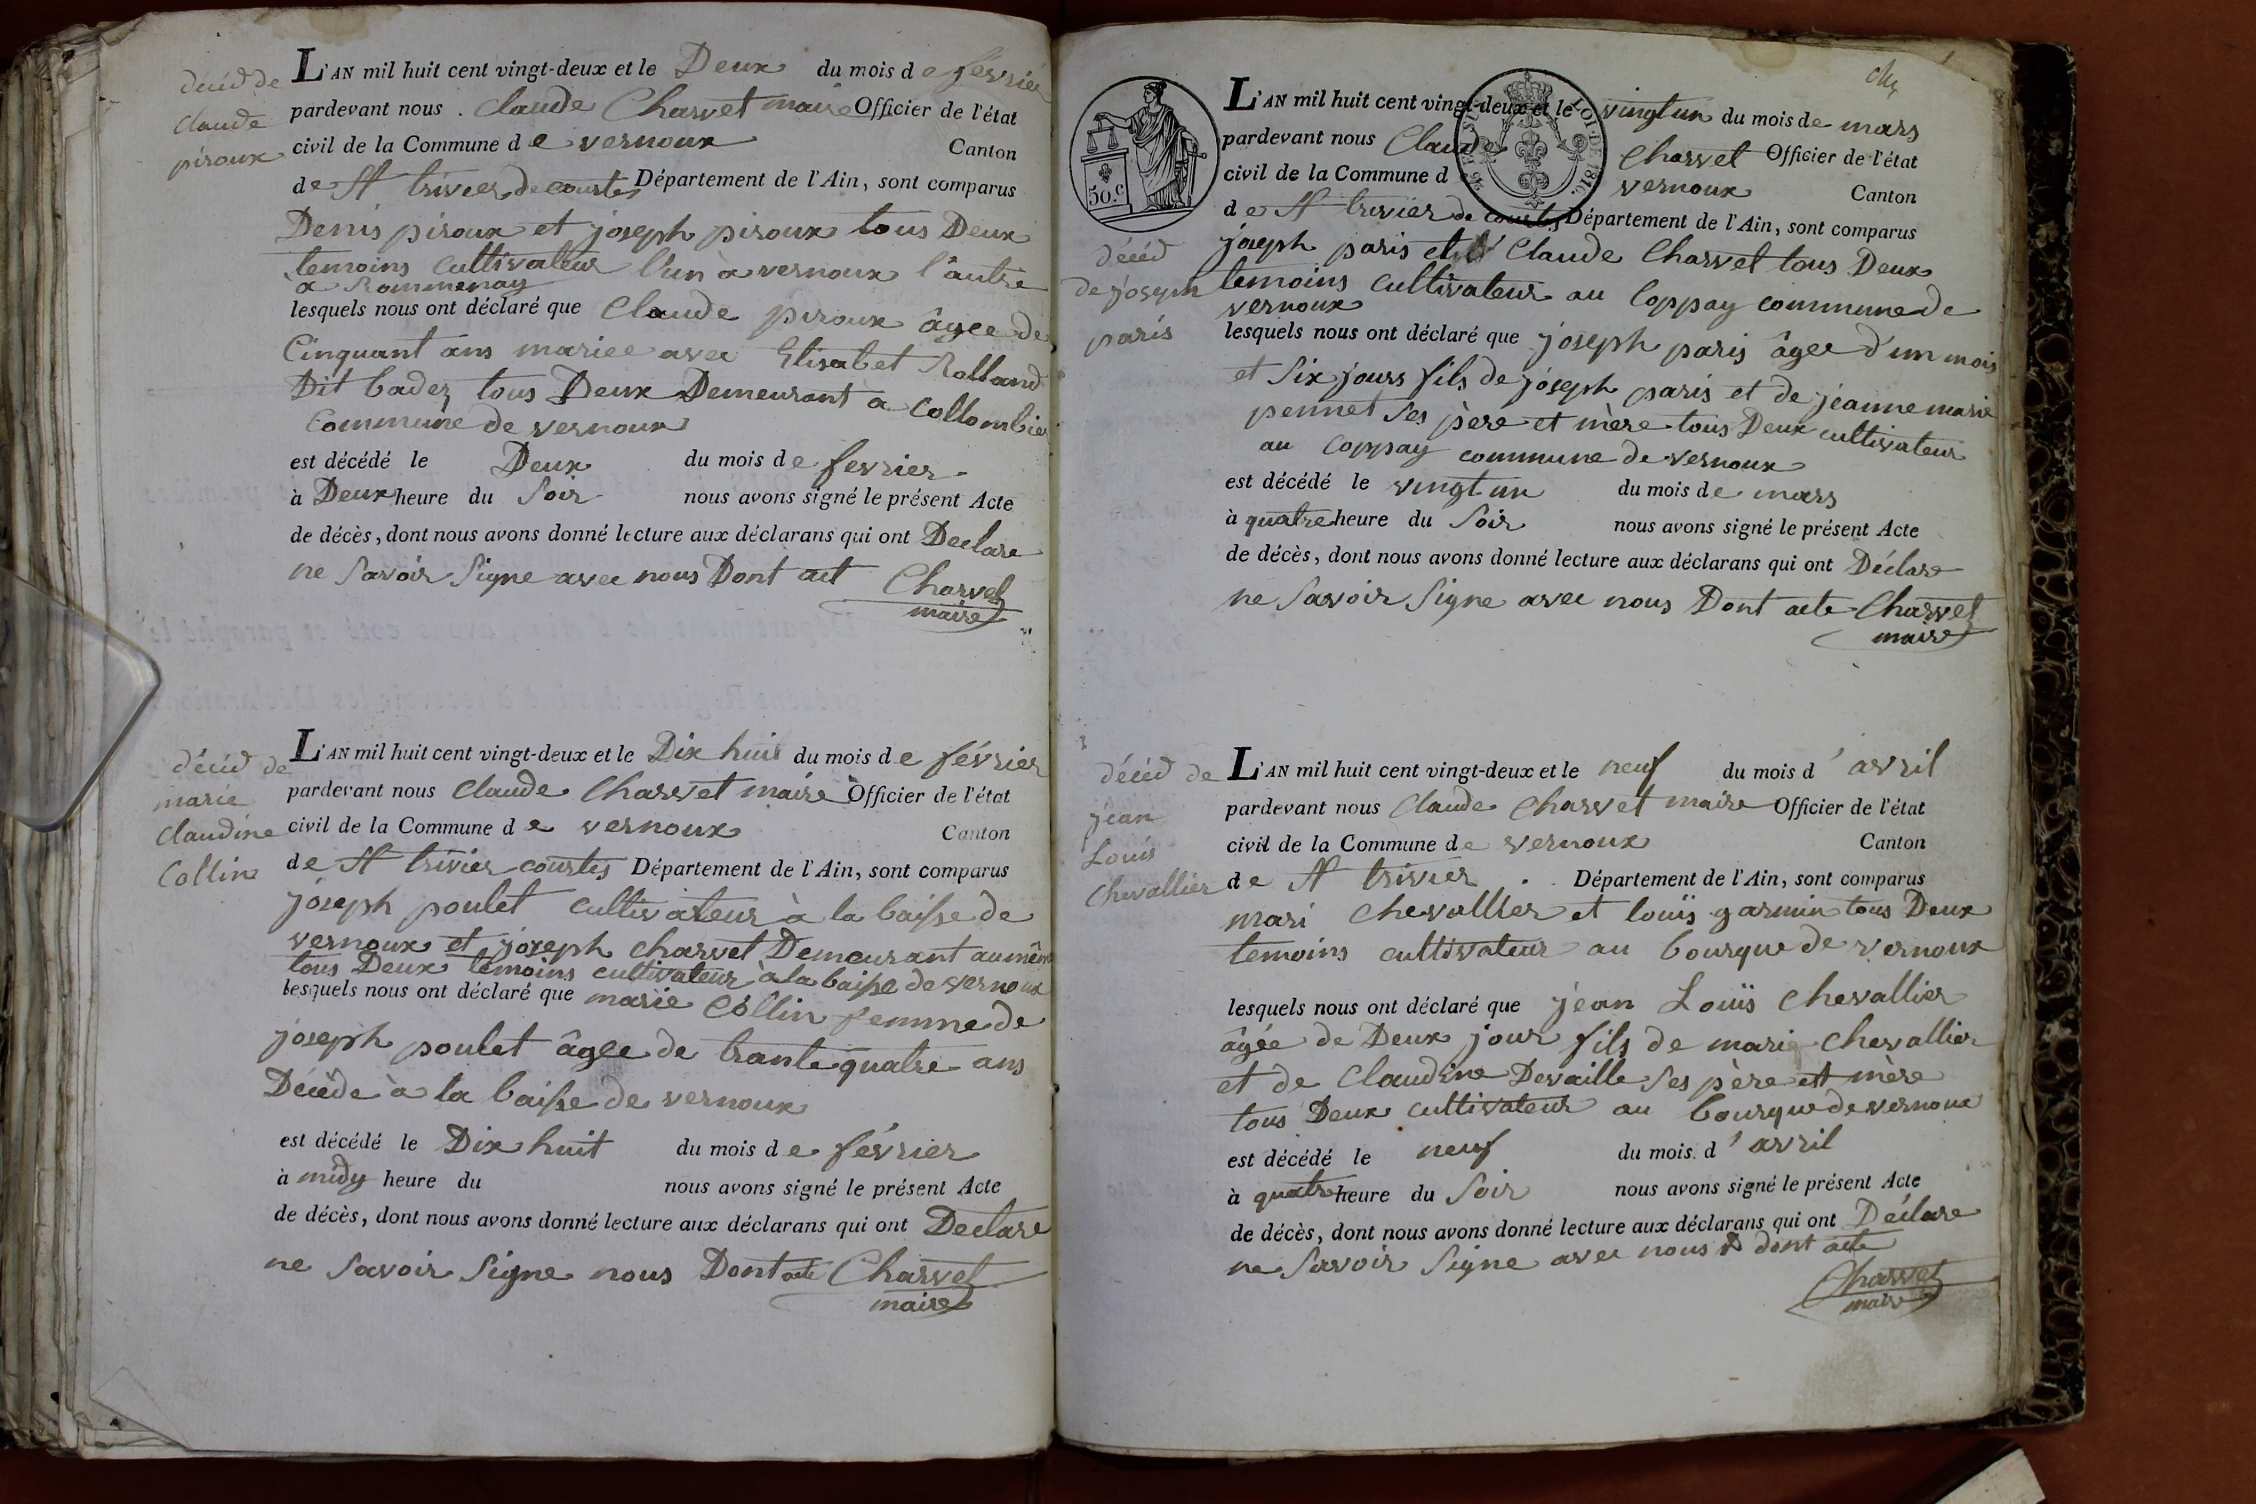 décéd de
claude
piroux
L'AN mil huit cent vingt-deux et le Deux du mois de février
pardevant nous . Claude Charvet maire Officier de l'état
civil de la Commune de vernoux Canton
de St trivier de courtes Département de l'Ain, sont comparus
Denis piroux et joseph piroux tous Deux
temoins cultivateur l'un a vernoux l'autre
a Rommenay
lesquels nous ont déclaré que Claude piroux âgee de
Cinquant ans mariee avec Elisabet Rolland
Dit badez tous Deux Demeurant a Collombier
Commune de vernoux
est décédé le Deux du mois de fevrier
à Deux heure du Soir nous avons signé le présent Acte
de décès, dont nous avons donné lecture aux déclarans qui ont Declare
ne Savoir Signe avec nous Dont act Charvet
maire
décéd de
marie
claudine
Collin
L'AN mil huit cent vingt-deux et le Dix huit du mois de février
pardevant nous Claude Charvet maire Officier de l'état
civil de la Commune de vernoux Canton
de St trivier courtes Département de l'Ain, sont comparus
joseph poulet cultivateur à la baisse de
vernoux et joseph charvet Demeurant au même
tous Deux temoins cultivateur à la baisse de vernoux
lesquels nous ont déclaré que marie Collin femme de
joseph poulet âgee de trante quatre ans
Décéde à la baisse de vernoux
est décédé le Dix huit du mois de février
à midy heure du nous avons signé le présent Acte
de décès, dont nous avons donné lecture aux déclarans qui ont Declare
ne Savoir Signe nous Dont acte Charvet
maire
50.c
LOI DE 1816.
décéd
de joseph
paris
L'AN mil huit cent vingt-deux et le vingt un du mois de mars
pardevant nous Claude Charvet Officier de l'état
civil de la Commune d vernoux Canton
de St trivier de courtes Département de l'Ain, sont comparus
joseph paris et Claude Charvet tous Deux
temoins cultivateur au Coppay commune de
vernoux
lesquels nous ont déclaré que joseph paris âgee d'un mois
et Six jours fils de joseph paris et de jeanne marie
pennet Ses père et mère tous Deux cultivateur
au Coppay commune de vernoux
est décédé le vingt un du mois de mars
à quatre heure du Soir nous avons signé le présent Acte
de décès, dont nous avons donné lecture aux déclarans qui ont Déclare
ne Savoir Signe avec nous Dont acte Charvet
maire
décéd de
jean
Louis
chevallier
L'AN mil huit cent vingt-deux et le neuf du mois d'avril
pardevant nous Claude Charvet maire Officier de l'état
civil de la Commune de vernoux Canton
de St trivier . . Département de l'Ain, sont comparus
mari chevallier et louïs garmin tous Deux
temoins cultivateur au bourque de vernoux
lesquels nous ont déclaré que jean Louïs chevallier
âgée de Deux jour fils de marie chevallier
et de Claudine Devaille Ses père et mère
tous Deux cultivateur au bourque de vernoux
est décédé le neuf du mois d'avril
à quatre heure du Soir nous avons signé le présent Acte
de décès, dont nous avons donné lecture aux déclarans qui ont Déclare
ne Savoir Signe avec nous dont acte
Charvet
maire